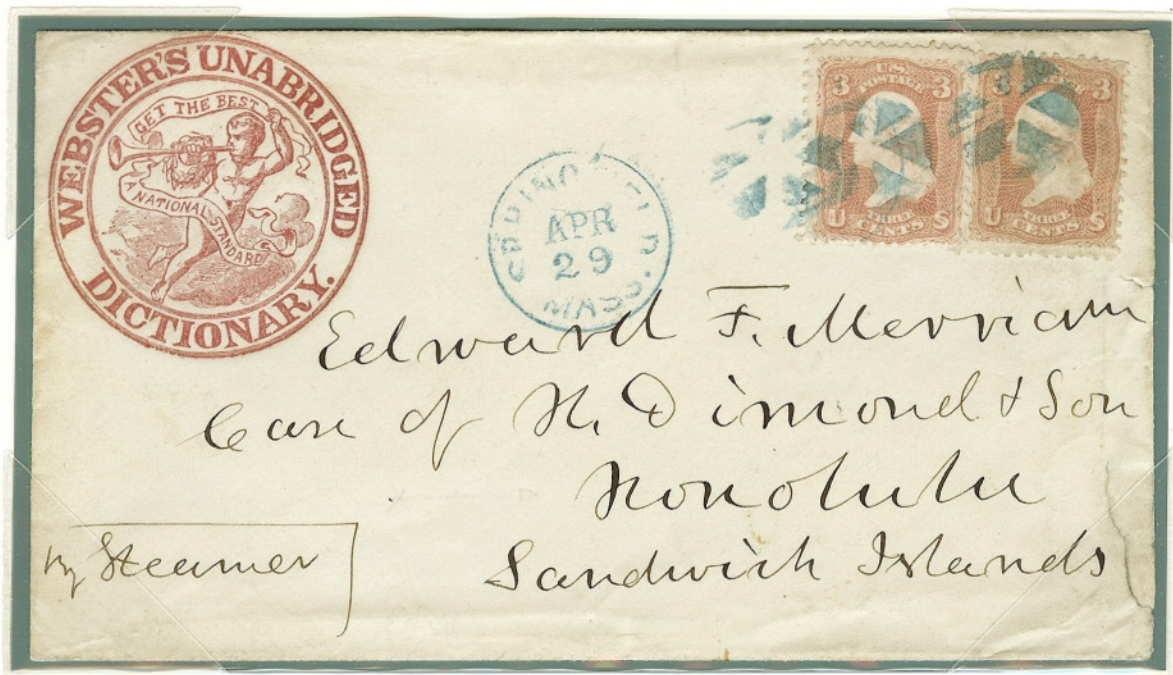 WEBSTER'S UNABRIDGED
DICTIONARY.
GET THE BEST
A NATIONAL STANDARD
SPRINGFIELD
APR
29
MASS.
3 U.S. 3
POSTAGE
U THREE S
CENTS
3
U THREE S
CENTS
Edward F. Merriam
Care of H. Dimond & Son
Honolulu
Sandwich Islands
by Steamer